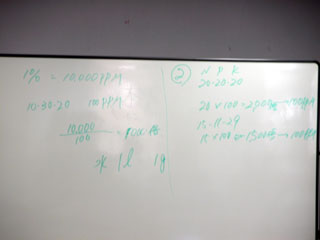 1% = 10,000 PPM
10-30-20 100 PPM
10,000
100
水 1l 1g
②
N P K
20-20-20
20 × 100 = 2000倍 → 100PPM
15-11-29
15 × 100 = 1500倍 → 100PPM